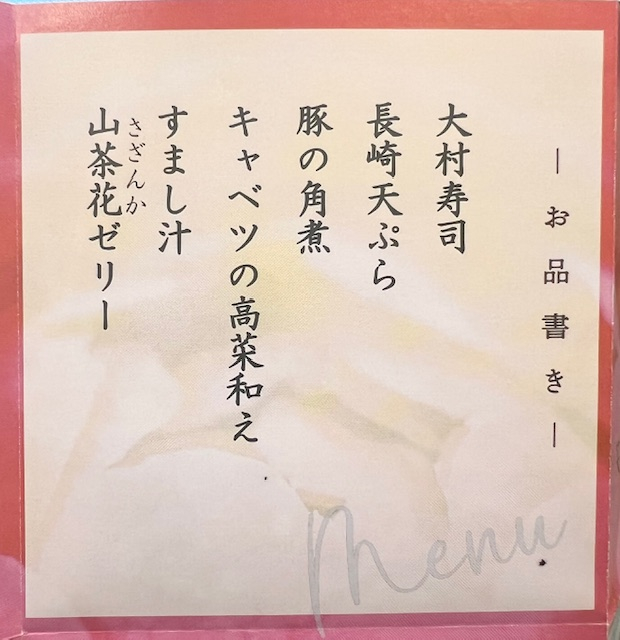 ―お品書き―
大村寿司
長崎天ぷら
豚の角煮
キャベツの高菜和え
すまし汁
さざんか
山茶花ゼリー
Menu